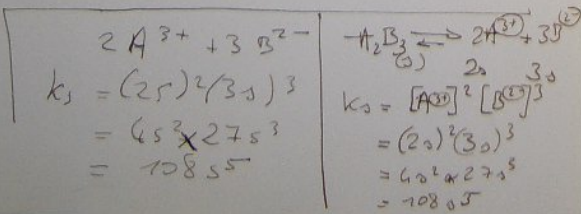 2 A³⁺ + 3 B²⁻
ks = (2s)²(3s)³
= 4s² x 27s³
= 108 s⁵
A₂B₃(s) ⇌ 2A³⁺ + 3B²⁻
2s 3s
Ks = [A³⁺]² [B²⁻]³
= (2s)²(3s)³
= 4s² x 27s³
= 108 s⁵